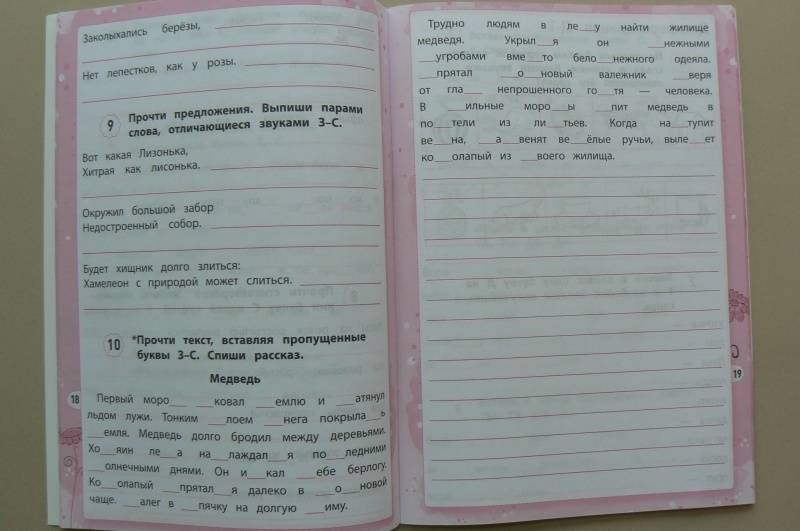 Заколыхались берёзы,
Нет лепестков, как у розы.
9 Прочти предложения. Выпиши парами
слова, отличающиеся звуками З–С.
Вот какая Лизонька,
Хитрая как лисонька.
Окружил большой забор
Недостроенный собор.
Будет хищник долго злиться:
Хамелеон с природой может слиться.
10 *Прочти текст, вставляя пропущенные
буквы З–С. Спиши рассказ.
Медведь
Первый моро__ __ковал __емлю и __атянул
льдом лужи. Тонким __лоем __нега покрыла__ь
__емля. Медведь долго бродил между деревьями.
Хо__яин ле__а на__лаждал__я по__ледними
__олнечными днями. Он и__кал __ебе берлогу.
Ко__олапый __прятал__я далеко в __о__новой
чаще. __алег в __пячку на долгую __иму.
18
Трудно людям в ле__у найти жилище
медведя. Укрыл__я он __нежными
__угробами вме__то бело__нежного одеяла.
__прятал __о__новый валежник __веря
от гла__ непрошенного го__тя — человека.
В __ильные моро__ы __пит медведь в
по__тели из ли__тьев. Когда на__тупит
ве__на, __а__венят ве__ёлые ручьи, выле__ет
ко__олапый из __воего жилища.
19